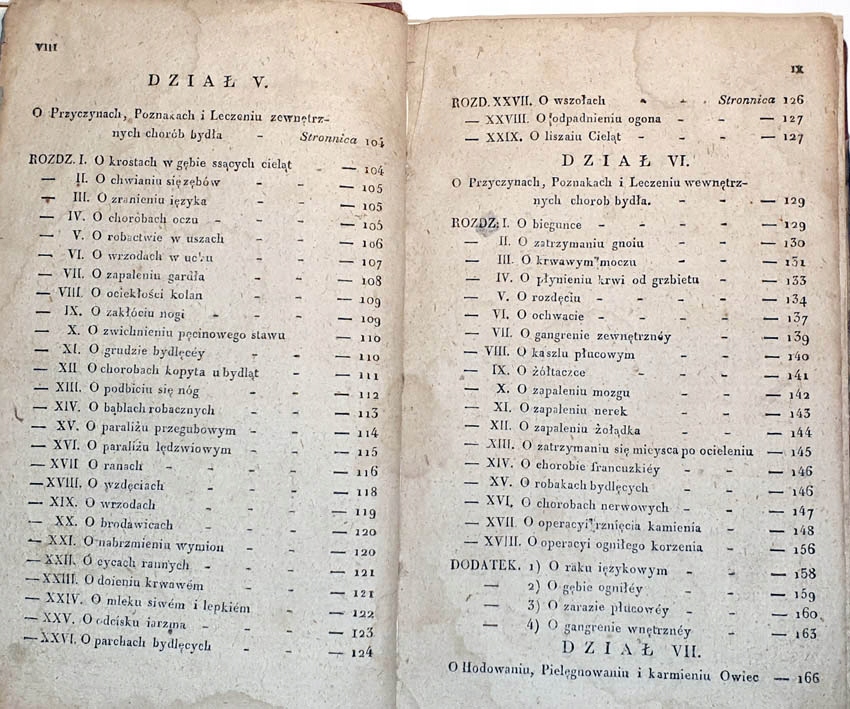 VIII
DZIAŁ V.
O Przyczynach, Poznakach i Leczeniu zewnętrz-
nych chorób bydła – Stronnica 104
ROZDZ. I. O krostach w gębie ssących cieląt — 104
— II. O chwianiu się zębów - - — 105
— III. O zranieniu ięzyka - - — 105
— IV. O chorobach oczu - - - — 105
— V. O robactwie w uszach - - — 106
— VI. O wrzodach w uchu - - — 107
— VII. O zapaleniu gardła - - — 108
— VIII. O ociekłości kolan - - — 109
— IX. O zakłóciu nogi - - - — 109
— X. O zwichnieniu pęcinowego stawu — 110
— XI. O grudzie bydlęcéy - - — 110
— XII O chorobach kopyta u bydląt - — 111
— XIII. O podbiciu się nóg - - — 112
— XIV. O bąblach robacznych - - — 113
— XV. O paraliżu przegubowym - - — 114
— XVI. O paraliżu lędzwiowym - - — 115
— XVII O ranach - - - — 116
— XVIII. O wzdęciach - - - — 118
— XIX. O wrzodach - - - — 119
— XX. O brodawicach - - - — 120
— XXI. O nabrzmieniu wymion - - — 120
— XXII. O cycach rannych - - — 121
— XXIII. O doieniu krwawém - - — 121
— XXIV. O mleku siwém i lepkiém - — 122
— XXV. O odcisku iarzma - - - — 123
— XXVI. O parchach bydlęcych - - — 124
IX
ROZD. XXVII. O wszołach - - Stronnica 126
— XXVIII. O odpadnieniu ogona - - — 127
— XXIX. O liszaiu Cieląt - - - — 127
DZIAŁ VI.
O Przyczynach, Poznakach i Leczeniu wewnętrz-
nych chorob bydła. - - — 129
ROZDZ. I. O biegunce - - - — 129
— II. O zatrzymaniu gnoiu - - — 130
— III. O krwawym moczu - - — 131
— IV. O płynieniu krwi od grzbietu - — 133
— V. O rozdęciu - - - - — 134
— VI. O ochwacie - - - — 137
— VII. O gangrenie zewnętrznéy - — 139
— VIII. O kaszlu płucowym - - — 140
— IX. O żółtaczce - - - — 141
— X. O zapaleniu mozgu - - — 142
— XI. O zapaleniu nerek - - — 143
— XII. O zapaleniu żołądka - - — 144
— XIII. O zatrzymaniu się mieysca po ocieleniu — 145
— XIV. O chorobie francuzkiéy - - — 146
— XV. O robakach bydlęcych - - — 146
— XVI. O chorobach nerwowych - - — 147
— XVII. O operacyi rznięcia kamienia - — 148
— XVIII. O operacyi ogniłego korzenia - — 156
DODATEK. 1) O raku ięzykowym - - — 158
— 2) O gębie ogniłéy - - — 159
— 3) O zarazie płucowéy - - — 160
— 4) O gangrenie wnętrznéy - — 163
DZIAŁ VII.
O Hodowaniu, Pielęgnowaniu i karmieniu Owiec — 166